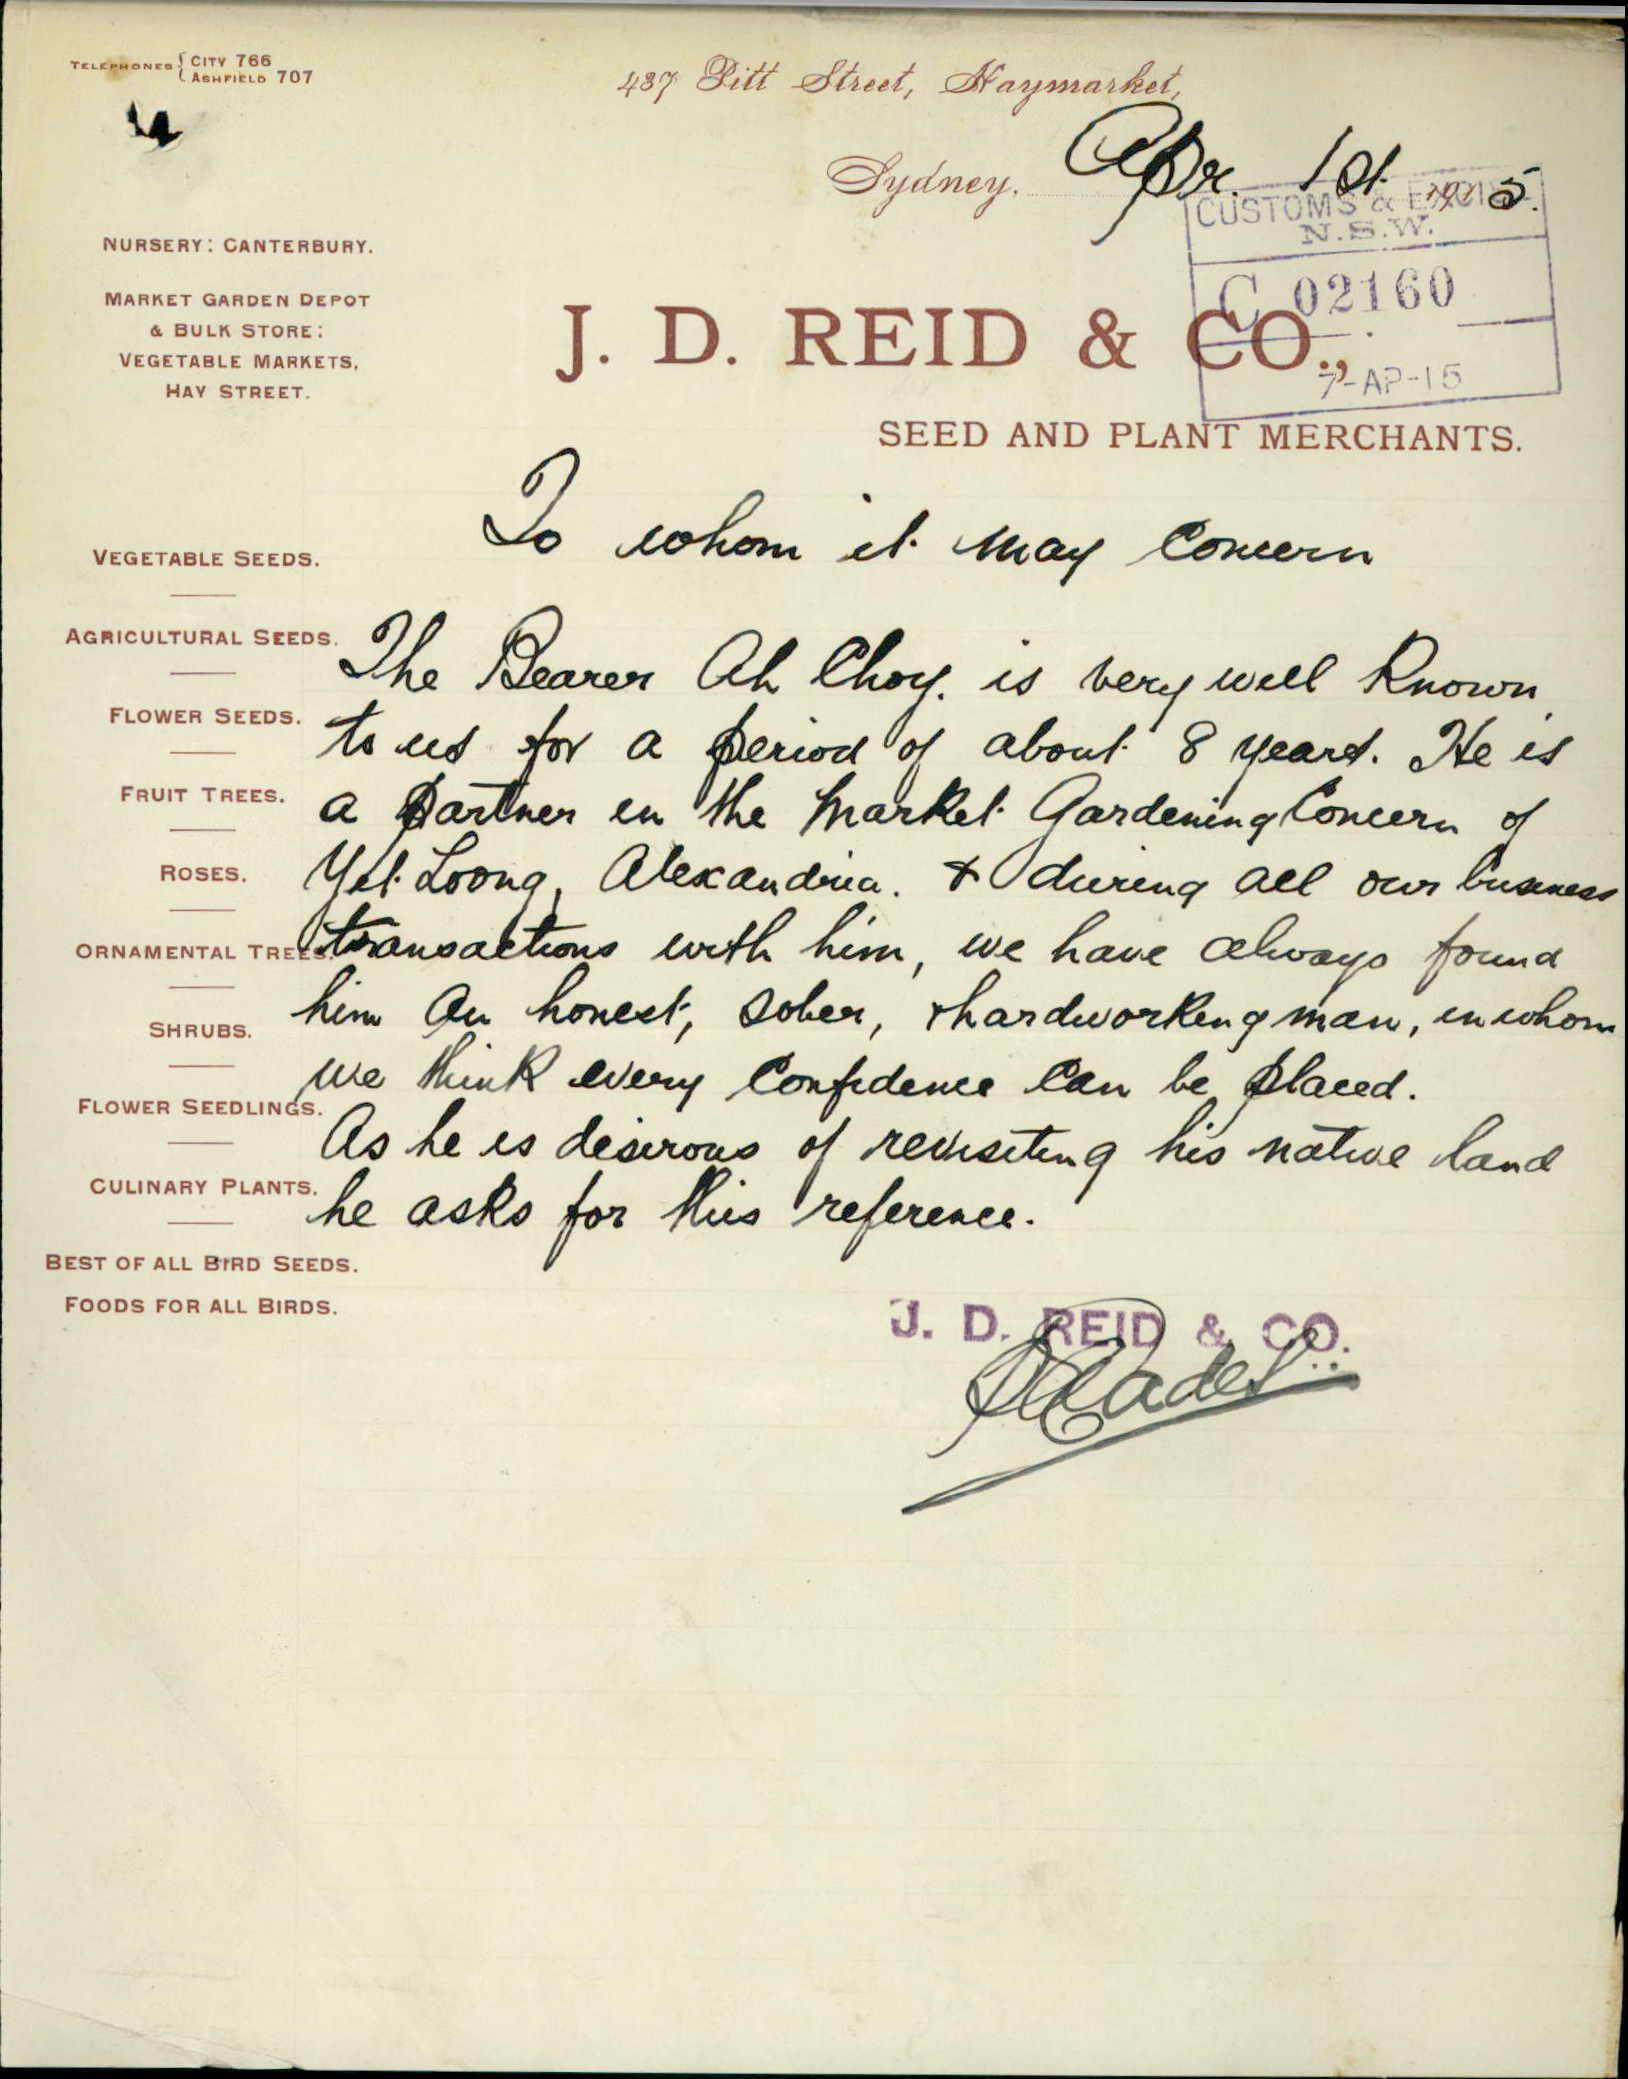 TELEPHONES { CITY 766
ASHFIELD 707
437 Pitt Street, Haymarket,
Sydney. Apr. 1st 1915.
CUSTOMS & EXCISE
N.S.W.
C 02160
7-AP-15
NURSERY: CANTERBURY.
MARKET GARDEN DEPOT
& BULK STORE:
VEGETABLE MARKETS,
HAY STREET.
J. D. REID & CO.,
SEED AND PLANT MERCHANTS.
VEGETABLE SEEDS.
AGRICULTURAL SEEDS.
FLOWER SEEDS.
FRUIT TREES.
ROSES.
ORNAMENTAL TREES.
SHRUBS.
FLOWER SEEDLINGS.
CULINARY PLANTS.
BEST OF ALL BIRD SEEDS.
FOODS FOR ALL BIRDS.
To whom it may Concern
The Bearer Ah Choy. is very well Known
to us for a period of about 8 years. He is
a partner in the Market Gardening Concern of
Yet Loong, Alexandria. & during all our business
transactions with him, we have always found
him an honest, sober, & hardworking man, in whom
we think every Confidence Can be placed.
As he is desirous of revisiting his native land
he asks for this reference.
J. D. REID & CO.